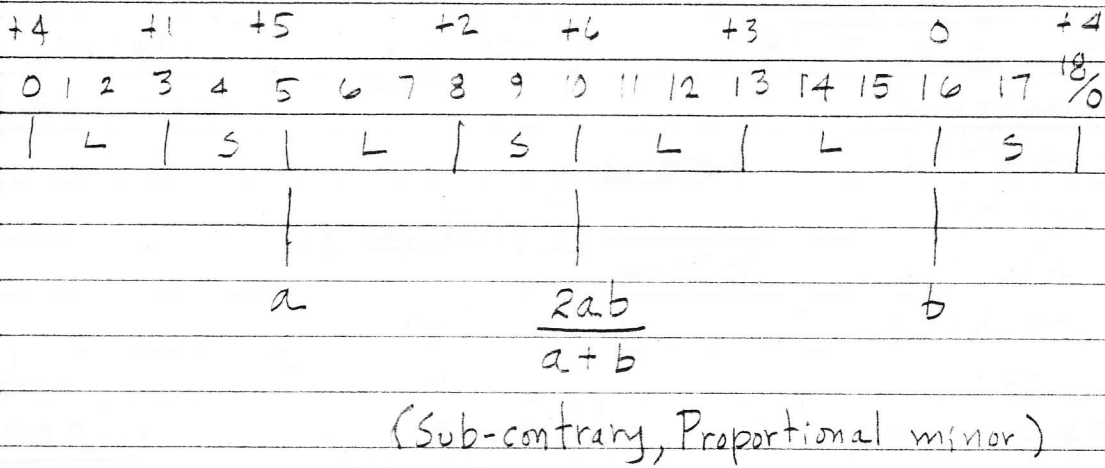 +4 +1 +5 +2 +6 +3 0 +4
0 1 2 3 4 5 6 7 8 9 10 11 12 13 14 15 16 17 18/0
| L | S | L | S | L | L | S |
a 2ab/a+b b
(Sub-contrary, Proportional minor)